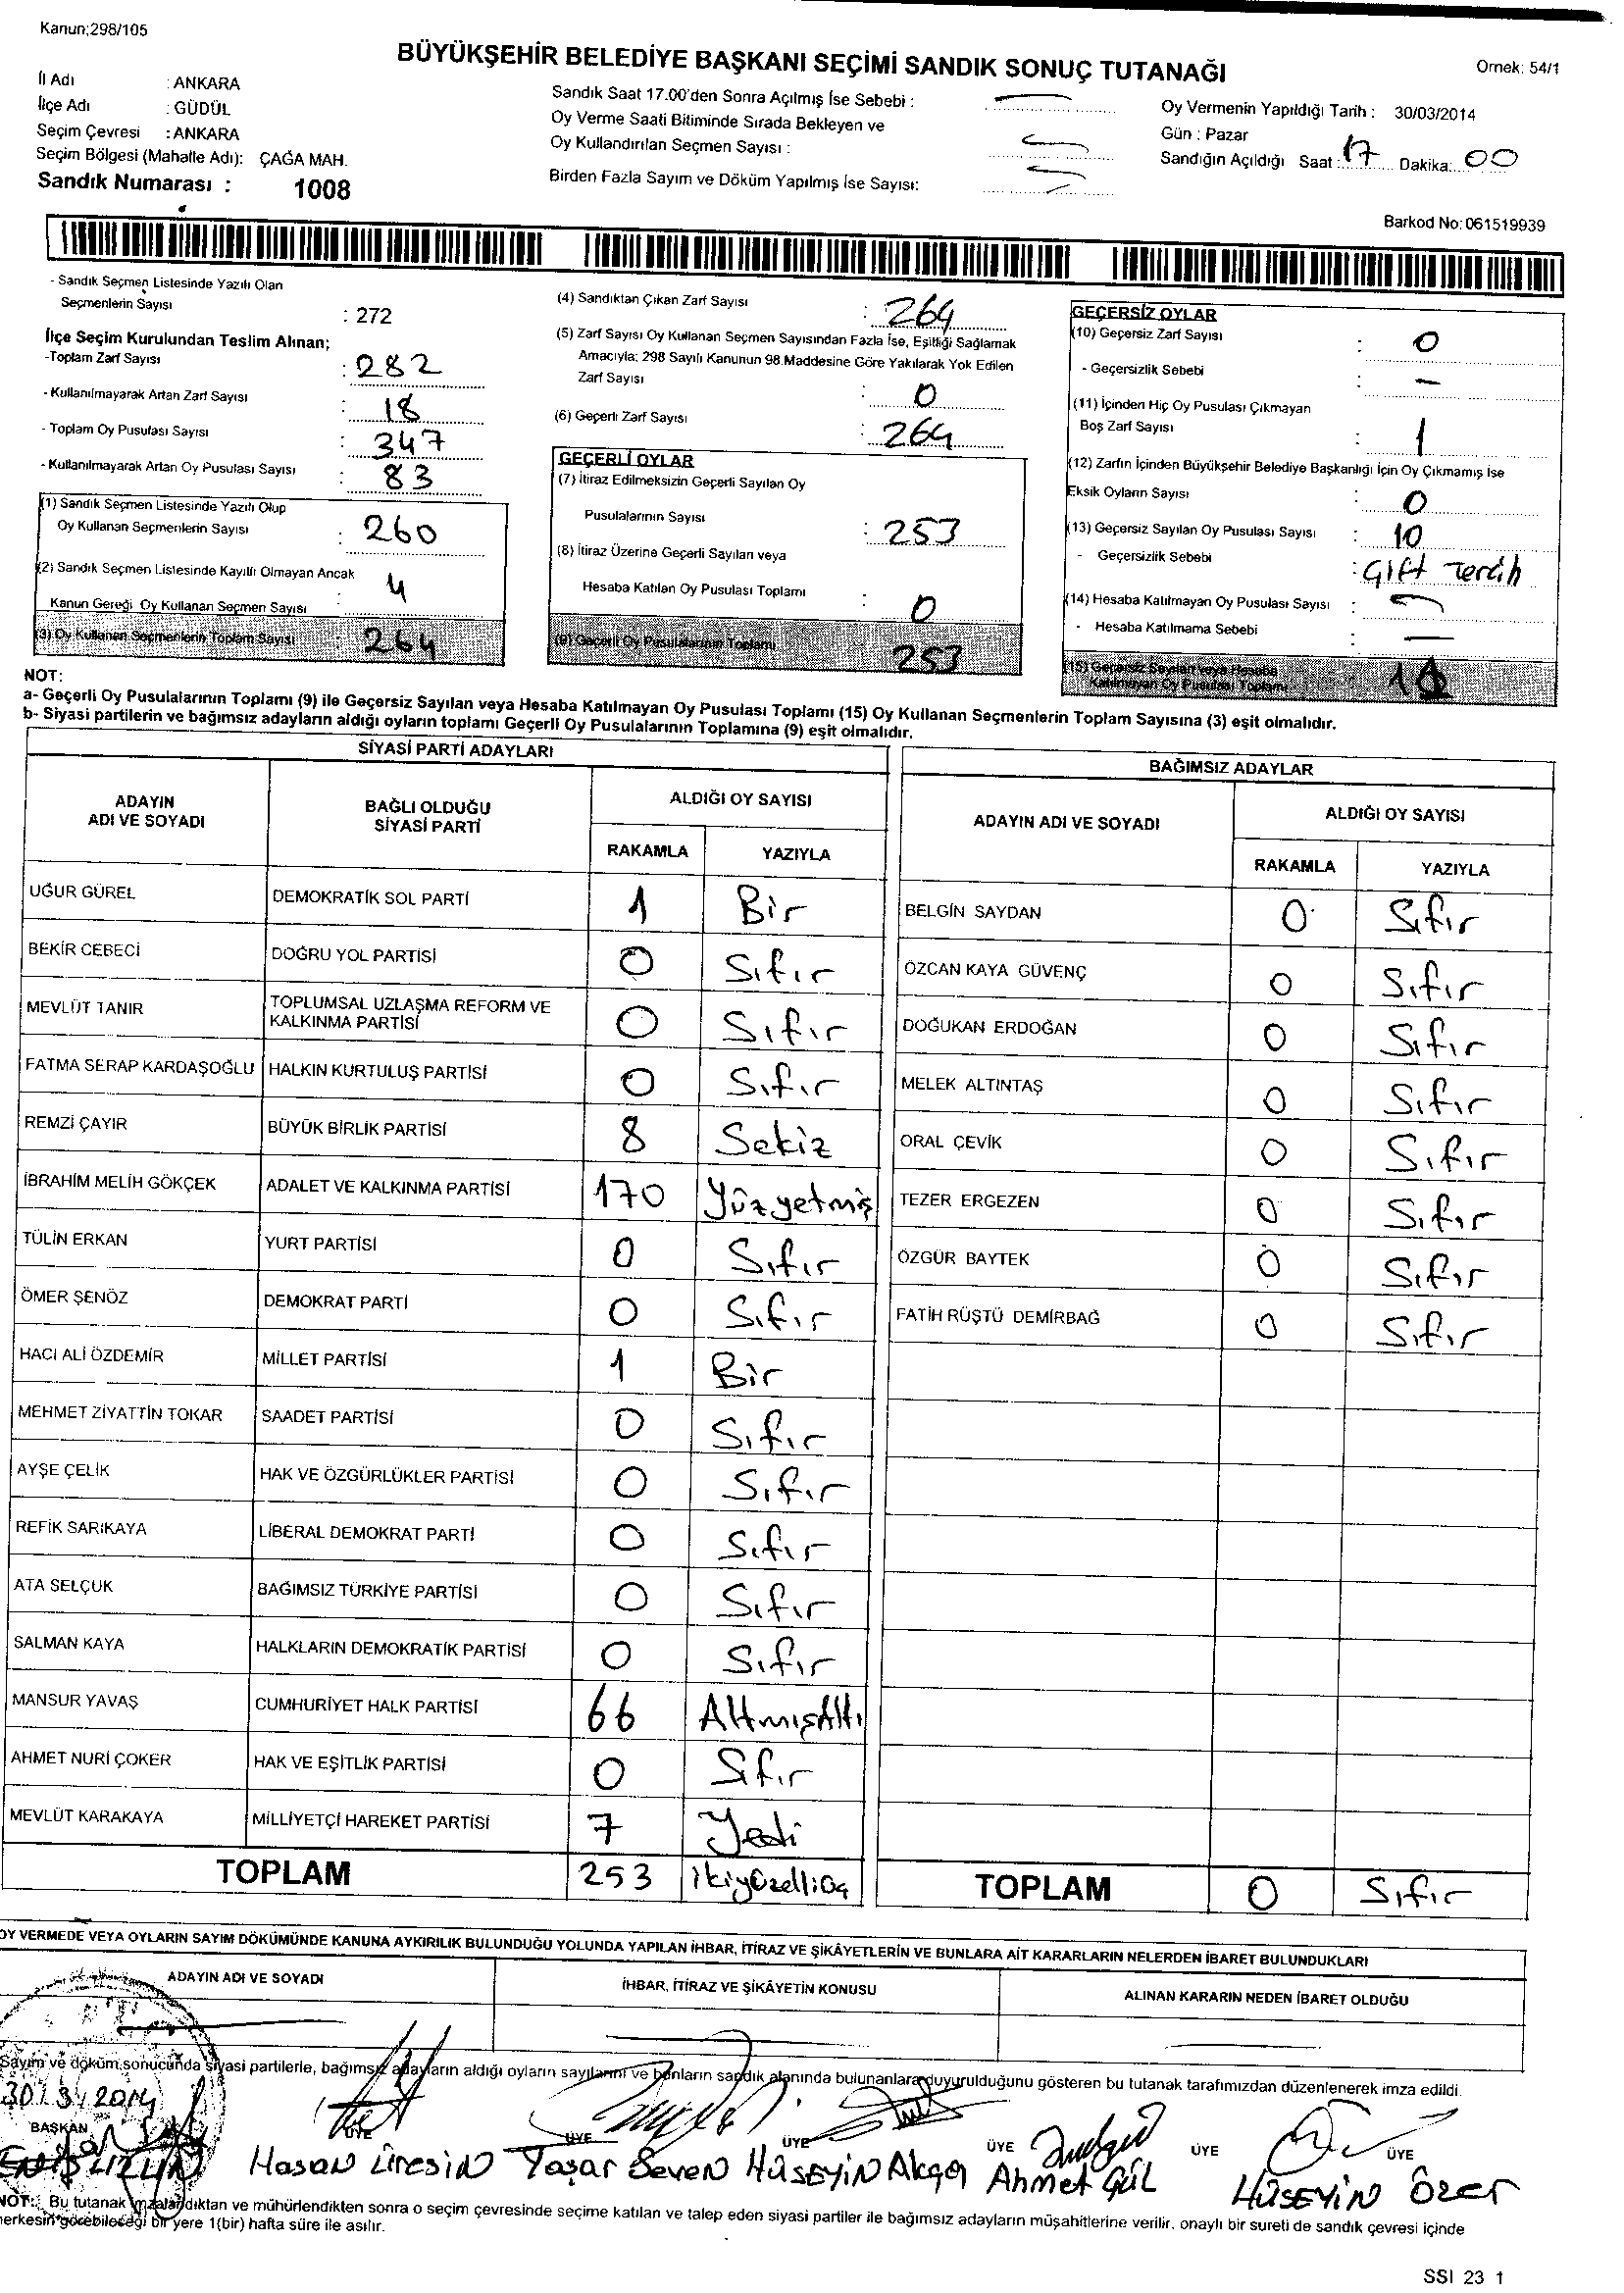 Kanun;298/105
BÜYÜKŞEHİR BELEDİYE BAŞKANI SEÇİMİ SANDIK SONUÇ TUTANAĞI
Ornek: 54/1
İl Adı : ANKARA
İlçe Adı : GÜDÜL
Seçim Çevresi : ANKARA
Seçim Bölgesi (Mahalle Adı): ÇAĞA MAH.
Sandık Numarası : 1008
Sandık Saat 17.00'den Sonra Açılmış İse Sebebi :
Oy Verme Saati Bitiminde Sırada Bekleyen ve
Oy Kullandırılan Seçmen Sayısı :
Birden Fazla Sayım ve Döküm Yapılmış İse Sayısı:
Oy Vermenin Yapıldığı Tarih : 30/03/2014
Gün : Pazar
Sandığın Açıldığı Saat : 17 Dakika: 00
Barkod No: 061519939
- Sandık Seçmen Listesinde Yazılı Olan
Seçmenlerin Sayısı : 272
İlçe Seçim Kurulundan Teslim Alınan;
-Toplam Zarf Sayısı : 282
- Kullanılmayarak Artan Zarf Sayısı : 18
- Toplam Oy Pusulası Sayısı : 347
- Kullanılmayarak Artan Oy Pusulası Sayısı : 83
(1) Sandık Seçmen Listesinde Yazılı Olup
Oy Kullanan Seçmenlerin Sayısı : 260
(2) Sandık Seçmen Listesinde Kayıtlı Olmayan Ancak
Kanun Gereği Oy Kullanan Seçmen Sayısı : 4
(3) Oy Kullanan Seçmenlerin Toplam Sayısı : 264
(4) Sandıktan Çıkan Zarf Sayısı : 264
(5) Zarf Sayısı Oy Kullanan Seçmen Sayısından Fazla İse, Eşitliği Sağlamak
Amacıyla; 298 Sayılı Kanunun 98.Maddesine Göre Yakılarak Yok Edilen
Zarf Sayısı : 0
(6) Geçerli Zarf Sayısı : 264
GEÇERLİ OYLAR
(7) İtiraz Edilmeksizin Geçerli Sayılan Oy
Pusulalarının Sayısı : 253
(8) İtiraz Üzerine Geçerli Sayılan veya
Hesaba Katılan Oy Pusulası Toplamı : 0
(9) Geçerli Oy Pusulalarının Toplamı 253
GEÇERSİZ OYLAR
(10) Geçersiz Zarf Sayısı : 0
- Geçersizlik Sebebi : -
(11) İçinden Hiç Oy Pusulası Çıkmayan
Boş Zarf Sayısı : 1
(12) Zarfın İçinden Büyükşehir Belediye Başkanlığı İçin Oy Çıkmamış İse
Eksik Oyların Sayısı : 0
(13) Geçersiz Sayılan Oy Pusulası Sayısı : 10
- Geçersizlik Sebebi : Çift Tercih
(14) Hesaba Katılmayan Oy Pusulası Sayısı : -
- Hesaba Katılmama Sebebi : -
(15) Geçersiz Sayılan veya Hesaba
Katılmayan Oy Pusulası Toplamı
NOT:
a- Geçerli Oy Pusulalarının Toplamı (9) ile Geçersiz Sayılan veya Hesaba Katılmayan Oy Pusulası Toplamı (15) Oy Kullanan Seçmenlerin Toplam Sayısına (3) eşit olmalıdır.
b- Siyasi partilerin ve bağımsız adayların aldığı oyların toplamı Geçerli Oy Pusulalarının Toplamına (9) eşit olmalıdır.
SİYASİ PARTİ ADAYLARI
ADAYIN ADI VE SOYADI BAĞLI OLDUĞU SİYASİ PARTİ ALDIĞI OY SAYISI
RAKAMLA YAZIYLA
UĞUR GÜREL DEMOKRATİK SOL PARTİ 1 Bir
BEKİR CEBECİ DOĞRU YOL PARTİSİ 0 Sıfır
MEVLÜT TANIR TOPLUMSAL UZLAŞMA REFORM VE KALKINMA PARTİSİ 0 Sıfır
FATMA SERAP KARDAŞOĞLU HALKIN KURTULUŞ PARTİSİ 0 Sıfır
REMZİ ÇAYIR BÜYÜK BİRLİK PARTİSİ 8 Sekiz
İBRAHİM MELİH GÖKÇEK ADALET VE KALKINMA PARTİSİ 170 Yüzyetmiş
TÜLİN ERKAN YURT PARTİSİ 0 Sıfır
ÖMER ŞENÖZ DEMOKRAT PARTİ 0 Sıfır
HACI ALİ ÖZDEMİR MİLLET PARTİSİ 1 Bir
MEHMET ZİYATTİN TOKAR SAADET PARTİSİ 0 Sıfır
AYŞE ÇELİK HAK VE ÖZGÜRLÜKLER PARTİSİ 0 Sıfır
REFİK SARIKAYA LİBERAL DEMOKRAT PARTİ 0 Sıfır
ATA SELÇUK BAĞIMSIZ TÜRKİYE PARTİSİ 0 Sıfır
SALMAN KAYA HALKLARIN DEMOKRATİK PARTİSİ 0 Sıfır
MANSUR YAVAŞ CUMHURİYET HALK PARTİSİ 66 AltmışAltı
AHMET NURİ ÇOKER HAK VE EŞİTLİK PARTİSİ 0 Sıfır
MEVLÜT KARAKAYA MİLLİYETÇİ HAREKET PARTİSİ 7 Yedi
TOPLAM 253 ikiyüzelliüç
BAĞIMSIZ ADAYLAR
ADAYIN ADI VE SOYADI ALDIĞI OY SAYISI
RAKAMLA YAZIYLA
BELGİN SAYDAN 0 Sıfır
ÖZCAN KAYA GÜVENÇ 0 Sıfır
DOĞUKAN ERDOĞAN 0 Sıfır
MELEK ALTINTAŞ 0 Sıfır
ORAL ÇEVİK 0 Sıfır
TEZER ERGEZEN 0 Sıfır
ÖZGÜR BAYTEK 0 Sıfır
FATİH RÜŞTÜ DEMİRBAĞ 0 Sıfır
TOPLAM 0 Sıfır
OY VERMEDE VEYA OYLARIN SAYIM DÖKÜMÜNDE KANUNA AYKIRILIK BULUNDUĞU YOLUNDA YAPILAN İHBAR, İTİRAZ VE ŞİKÂYETLERİN VE BUNLARA AİT KARARLARIN NELERDEN İBARET BULUNDUKLARI
ADAYIN ADI VE SOYADI İHBAR, İTİRAZ VE ŞİKÂYETİN KONUSU ALINAN KARARIN NEDEN İBARET OLDUĞU
Sayım ve döküm sonucunda siyasi partilerle, bağımsız adayların aldığı oyların sayılarını ve bunların sandık alanında bulunanlara duyurulduğunu gösteren bu tutanak tarafımızdan düzenlenerek imza edildi.
30/3/2014
BAŞKAN ÜYE ÜYE ÜYE ÜYE ÜYE ÜYE
Hasan üresin Yaşar Seven HüSEYİN Akça Ahmet GÜL HüSEYİN Özer
NOT: Bu tutanak imzalandıktan ve mühürlendikten sonra o seçim çevresinde seçime katılan ve talep eden siyasi partiler ile bağımsız adayların müşahitlerine verilir, onaylı bir sureti de sandık çevresi içinde
herkesin görebileceği bir yere 1(bir) hafta süre ile asılır.
SSI 23 1